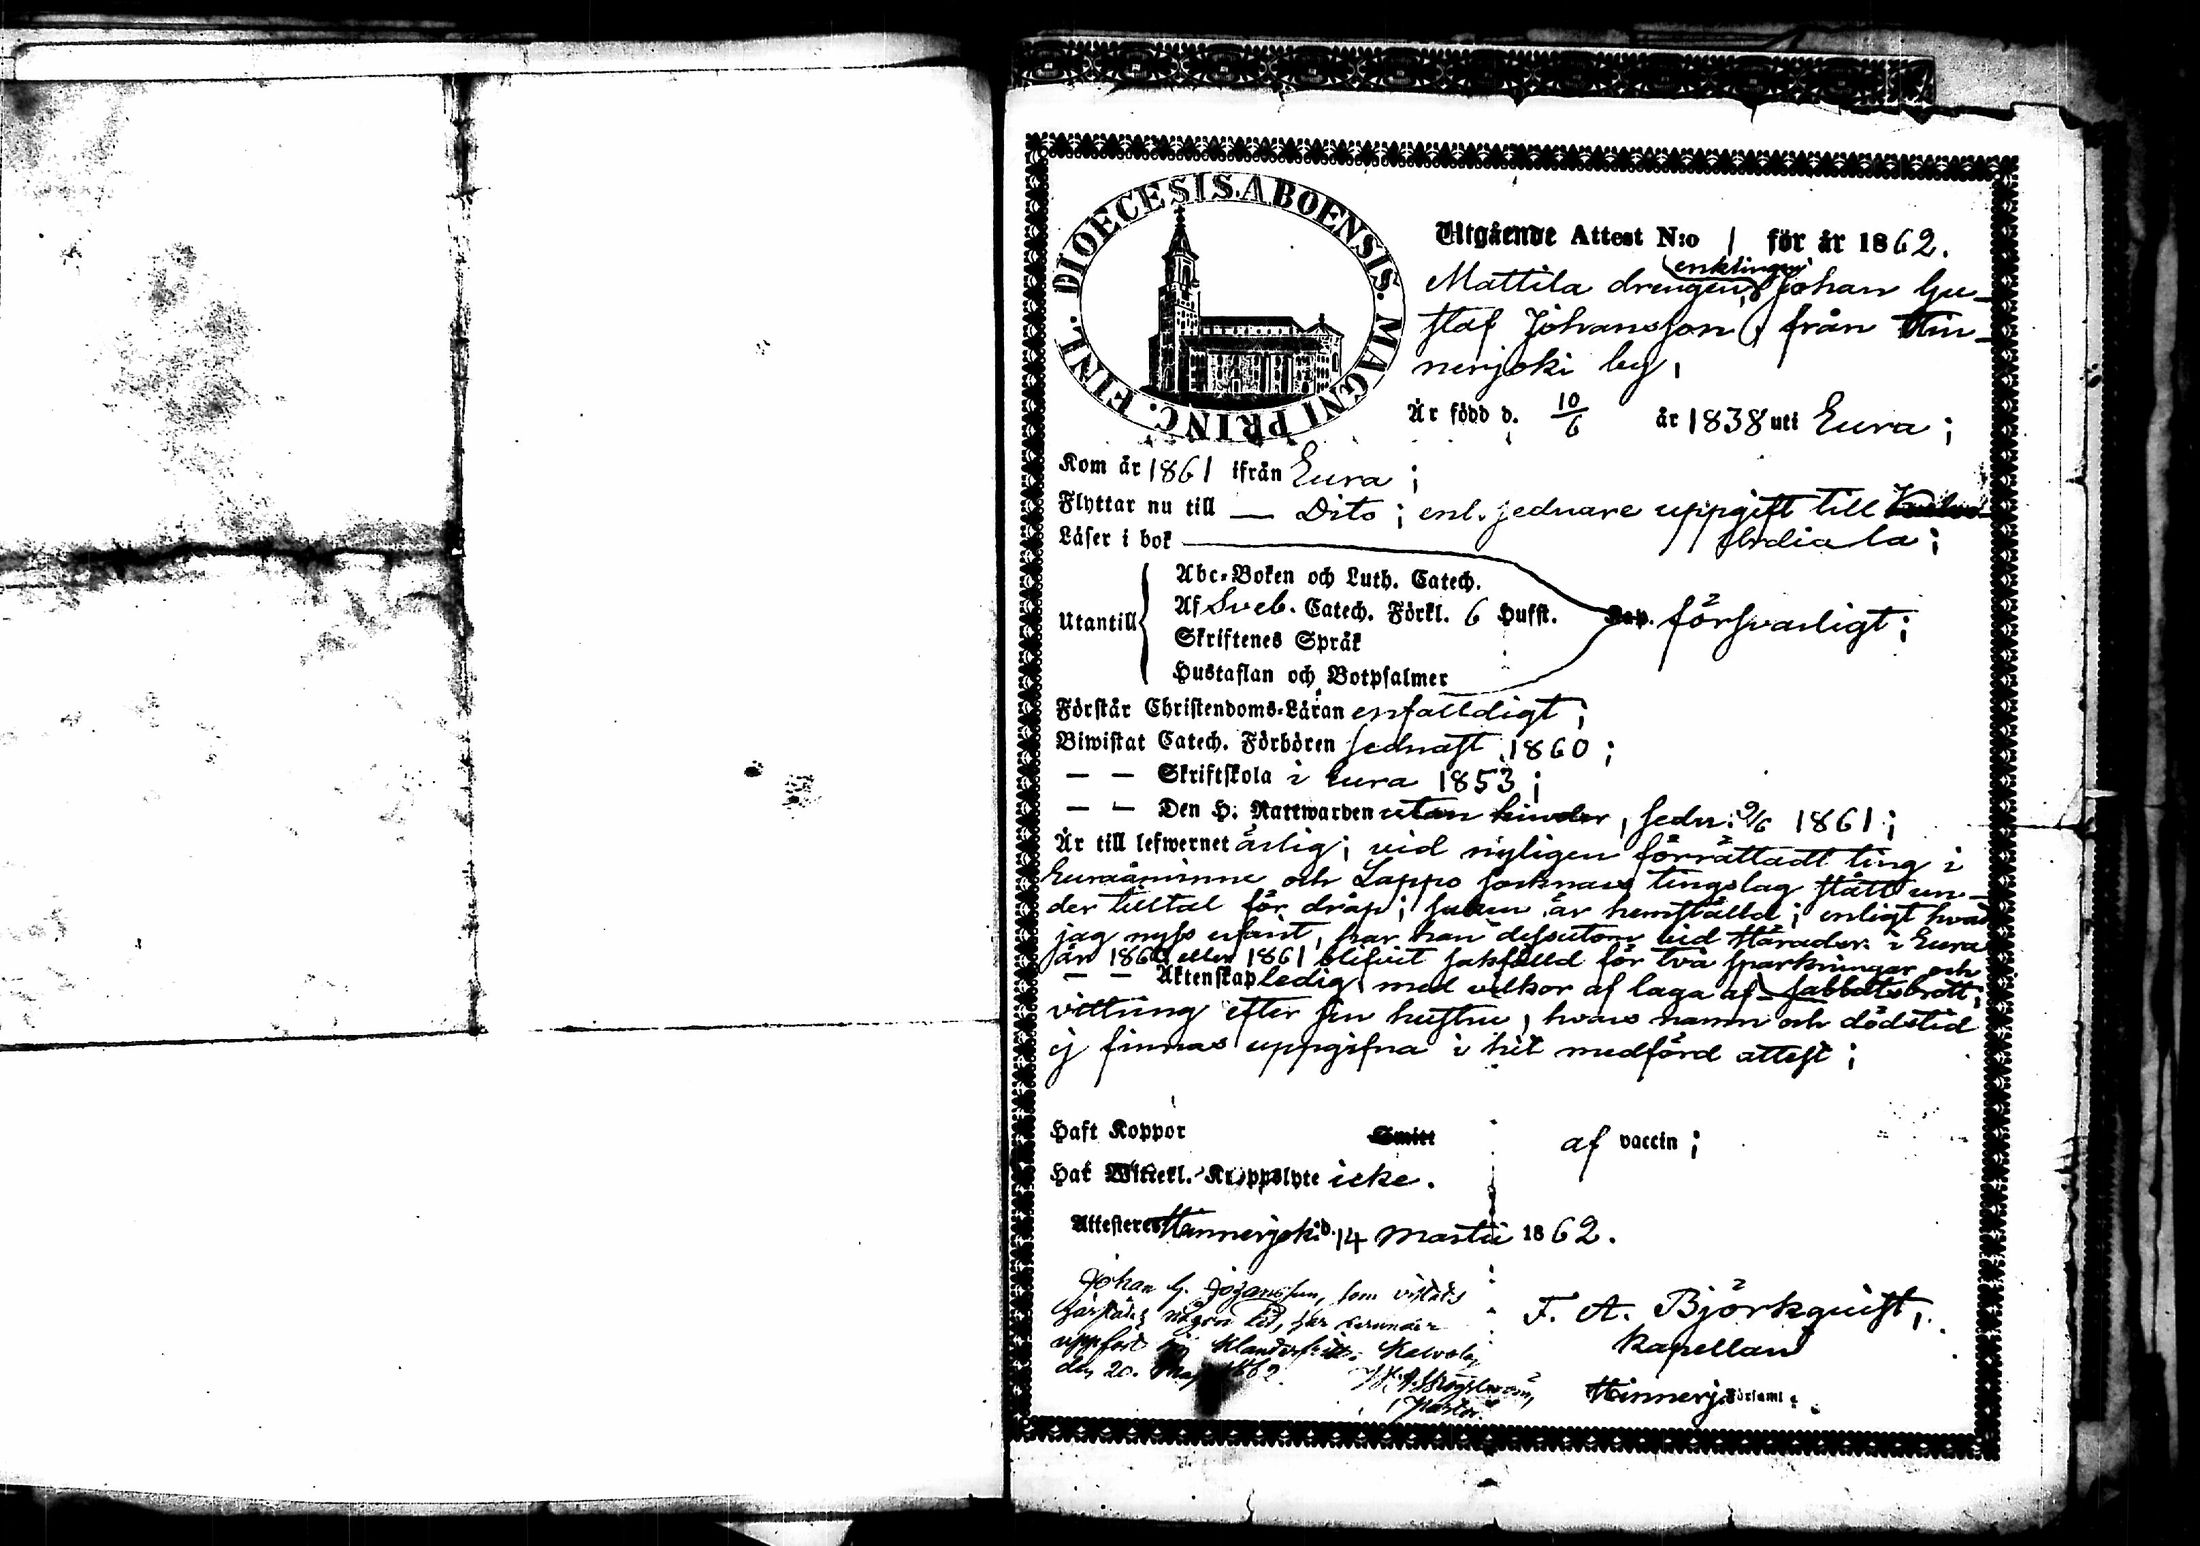 DIOECESIS. ABOENSIS. MAGNI PRINC. FINL.
Utgående Attest N:o 1 för år 1862.
enklingen
Mattila drengen, Johan Gu-
staf Johansson, från Hin-
nerjoki by,
Är född d. 10/6 år 1838 uti Eura;
Kom år 1861 ifrån Eura;
Flyttar nu till — Dito; enl. sednare uppgift till
Läser i bok
Utantill
Abc-Boken och Luth. Catech.
Af Sveb. Catech. Förkl. 6 Hufst. Kap. försvarligt;
Skriftenes Språk
Hustaflan och Botpsalmer
Förstår Christendoms-Läran enfalldigt;
Biwistat Catech. Förhören sednast 1860;
— — Skriftskola i Eura 1853;
— — Den H. Nattwarden utan hinder, sedn. 9/6 1861;
Är till lefwernet ärlig; vid nyligen förrättadt ting i
Euraåminne och Lappo socknars tingslag stått un-
der tilltal för dråp; saken är hemställd; enligt hvad
jag nyss erfarit, har han dessutom vid Härader i Eura
år 1860 eller 1861 blifvit sakfälld för två sparkningar och
sabbatsbrott;
— — Äktenskap ledig, med vilkor af laga af-
vittring efter sin hustru, hvars namn och dödstid
ej finnas uppgifna i hit medförd attest;
Haft Koppor Smitt af vaccin;
Har Witterl. Kroppslyte icke.
Attesteres Hinnerjoki d. 14 Martii 1862.
Johan G. Johansson, som vistats
härstädes någon tid, har
uppfört sig Kalvola,
den 20. Maj 1862.
Pastor.
F. A. Björkquist,
Kapellan
Hinnerj. Församl.